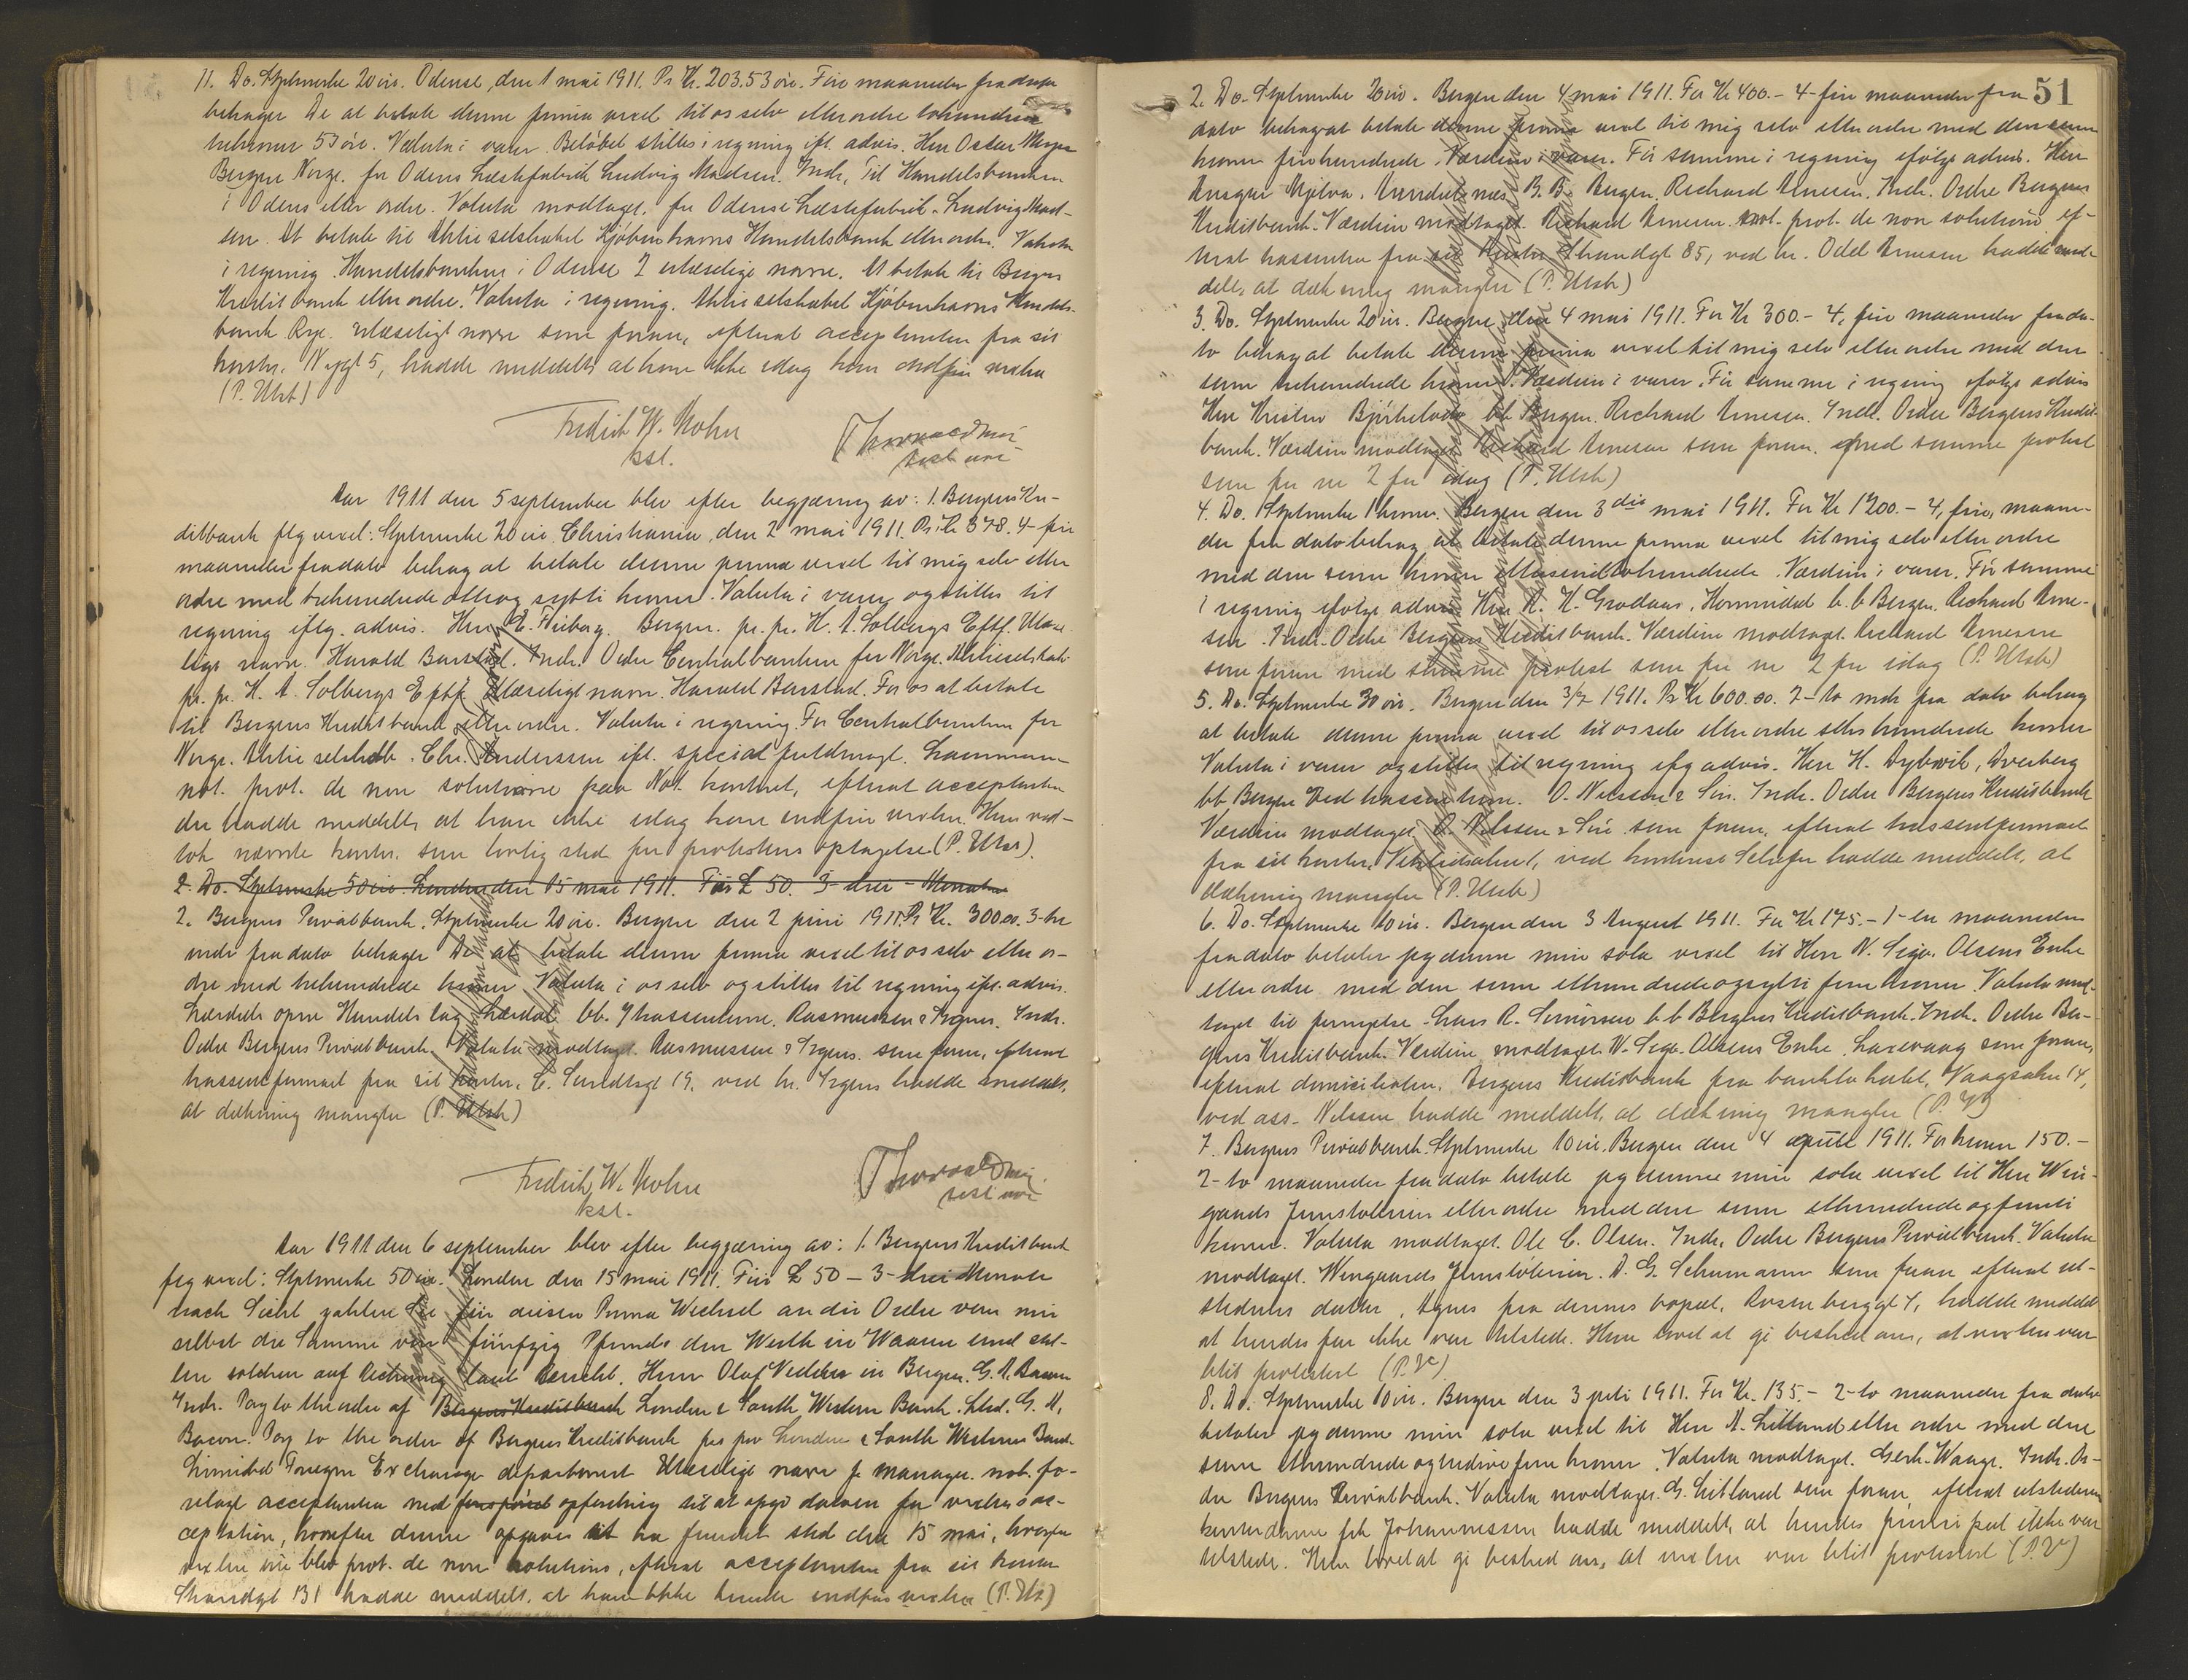 11. Do. Stplmerke 20 öre. Odense, den 1 mai 1911. Pr Kr. 203.53 öre. Fire maaneder fra dato
behager De at betale denne prima vexel til os selv eller ordre tohundrede
trekroner 53 öre. Valuta i varer. Beløbet stilles i regning ifl. advis. Herr Oscar
Bergen Norge. for Odense Læstefabrik Ludvig Madsen. Indr. Til Handelsbanken
i Odense eller ordre. Valuta modtaget. for Odense Læstefabrik. Ludvig Mad-
sen. At betale til Aktieselskabet Kjøbenhavns Handelsbank eller ordre. Valuta
i regning. Handelsbanken i Odense 2 ulæselige navne. At betale til Bergens
Kreditbank eller ordre. Valuta i regning. Aktieselskabet Kjøbenhavns Handels-
bank ulæseligt navn som foran, efterat acceptanten fra sit
kontor, Nygt 5, hadde meddelt, at han ikke idag kan indfri vexlen
(P. Utst)
Fredrik W. Mohn
kst.
Aar 1911 den 5 september blev efter begjæring av: 1. Bergens Kre-
ditbank flg vexel: Stplmerke 20 öre. Christiania, den 2 mai 1911. Pr. Kr 378. 4- fire
maaneder fra dato behag at betale denne prima vexel til mig selv eller
ordre med trehundrede otteog sytti kroner. Valuta i varer og stilles til
regning iflg. advis. Herr E. Friberg. Bergen. pr. pr. H. A. Solbergs Eftf. Ulæse-
ligt navn. Harald Barstad. Indr. Ordre Centralbanken for Norge. Aktieselskab.
pr. pr. H. A. Solbergs Eftf. Ulæseligt navn. Harald Barstad. For os at betale
til Bergens Kreditbank eller ordre. Valuta i regning. For Centralbanken for
Norge. Aktieselskab. Chr. Anderssen ifl. special fuldmagt.
not. prot. de non solutione paa Not. kontoret, efterat acceptanten
der hadde meddelt, at han ikke idag kan indfri vexlen. Han ved-
tok nævnte kontor, som lovlig sted for protestens optagelse (P. Utst).
2. Do. Stplmerke 50 öre London den 15 mai 1911. Für £ 50. 3- drei - Monate
2. Bergens Privatbank. Stplmerke 20 öre. Bergen den 2 juni 1911. Pr Kr. 300.00. 3- tre
mdr fra dato behager De at betale denne prima vexel til os selv eller or-
dre med trehundrede kroner. Valuta i os selv og stilles til regning ifl. advis.
Lærdals opre Handelslag Lærdal. bb. Trassenterne. Rasmussen & Irgens. Indr.
Ordre Bergens Privatbank. Valuta modtaget. Rasmussen & Irgens. som foran, efterat
trassentfirmaet fra sit kontor, C. Sundtsgt 19, ved hr. Irgens hadde meddelt,
at dækning mangler (P. Utst)
Fredrik W. Mohn
kst.
Aar 1911 den 6 september blev efter begjæring av: 1. Bergens Kreditbank
flg vexel: Stplmerke 50 öre. London den 15 mai 1911. Für £ 50 - 3- drei Monate
nach Sicht zahlen Sie für diesen Prima Wechsel an die Ordre von mir
selbst die Summe von fünfzig Pfunds den Werth in Waaren und stel-
len solchen auf Rechnung laut Bericht. Herrn Olaf Vedeler in Bergen. G. A. Bacon
Indr. Pay to the order of Bergens Kreditbank London & South Western Bank. Ltd. G. A.
Bacon. Pay to the order of Bergens Kreditbank per pro London & South Western Bank
Limited Foreign Exchange department Ulæseligt navn fr manager. not. fo-
relagt acceptanten med opfordring til at opgi datoen for vexlens ac-
ceptation, hvorefter denne opgaves at ha fundet sted den 15 mai, hvorpaa
vexlen blev prot. de non solutions, efterat acceptanten fra sit kontor
Strandgt 131 hadde meddelt, at han ikke kunde indfri vexlen (P. Ut)
51
2. Do. Stplmerke 20 öre. Bergen den 4 mai 1911. For Kr 400.- 4- fire maaneder fra
dato behag at betale denne prima vexel til mig selv eller ordre med den sum
kroner firehundrede. Værdien i varer. Før samme i regning ifølge advis. Herr
Ansgar Mjelva. B. B. Bergen. Richard Arnesen. Indr. Ordre Bergens
Kreditbank. Værdien modtaget. Richard Arnesen. not. prot. de non solutione, ef-
terat trassenten fra sit kontor Strandgt 85, ved hr. Odd Arnesen hadde med-
delt, at dækning mangler (P. Utst)
3. Do. Stplmerke 20 öre. Bergen, den 4 mai 1911. For Kr 300.- 4, fire maaneder fra da-
to behag at betale denne prima vexel til mig selv eller ordre med den
sum trehundrede kroner. Værdien i varer. Før samme i regning ifølge advis
Herr Kristen bb Bergen. Richard Arnesen. Indr. Ordre Bergens Kredit-
bank. Værdien modtaget. Richard Arnesen som foran. med samme protest
som for nr 2 for idag (P. Utst)
4. Do. Stplmerke 1 krone. Bergen den 3die mai 1911. For Kr 1200.- 4, fire, maane-
der fra dato behag at betale denne prima vexel til mig selv eller ordre
med den sum kroner ettusindtohundrede. Værdien i varer. Før samme
i regning ifølge advis Herr K. K. Grodaas, Hornindal b. b Bergen. Richard Arne-
sen. Indr. Ordre Bergens Kreditbank. Værdien modtaget. Richard Arnesen
som foran med samme protest som for nr 2 for idag (P. Utst)
5. Do. Stplmerke 30 öre. Bergen den 3/7 1911. Pr Kr 600.00. 2- to mdr fra dato behag
at betale denne prima vexel til os selv eller ordre sekshundrede kroner
Valuta i varer og stilles til regning iflg advis. Herr H. Dybvik, Dverberg
bb Bergen Ved trassenterne. O. Nilssen & Søn. Indr. Ordre Bergens Kreditbank
Værdien modtaget. O. Nilssen & Søn som foran, efterat trassentfirmaet
fra sit kontor, ved hadde meddelt, at
dækning mangler (P. Utst)
6. Do. Stplmerke 10 öre. Bergen den 3 August 1911. For Kr 175.- 1- en maaneder
fra dato betaler jeg denne min sola vexel til Herr N. Sigv. Olsens Enke
eller ordre med den sum etthundredeogsytti fem kroner. Valuta mod-
taget til fornøielse. Lars R. Simonsen b b Bergens Kreditbank. Indr. Ordre Ber-
gens Kreditbank. Værdien modtaget. N. Sigv. Olsens Enke. Laxevaag som foran,
efterat domiciliaten, Bergens Kreditbank fra banklokalet, Vaagsalm 14,
ved ass. Nilssen hadde meddelt, at dækning mangler (P. V)
7. Bergens Privatbank. Stplmerke 10 öre. Bergen den 4 april 1911. For kroner 150.-
2- to maaneder fra dato betale jeg denne min sola vexel til Herr Win-
gaards Jernstøberi eller ordre med den sum etthundredeogfemti
kroner. Valuta modtaget. Ole C. Olsen. Indr. Ordre Bergens Privatbank. Valuta
modtaget. Wingaards Jernstøberi. D. G. Schumann som foran efterat ut-
stederens datter, Agnes fra dennes bopæl, Rosenberggt 7, hadde meddelt
at hendes far ikke var tilstede. Hun lovet at gi besked om, at vexlen var
blit protestert (P. V)
8. Do. Stplmerke 10 öre. Bergen den 3 juli 1911. For Kr. 135.- 2- to maaneder fra dato
betaler jeg denne min sola vexel til Herr A. Litland eller ordre med den
sum etthundredeogtredivefem kroner. Valuta modtaget. Gerh. Waage. Indr. Or-
dre Bergens Privatbank. Valuta modtaget. G. Litland som foran, efterat utstederens
kontordame frk Johannessen hadde meddelt, at hendes principal ikke var
tilstede. Hun lovet at gi besked om, at vexlen var blit protestert (P. V)